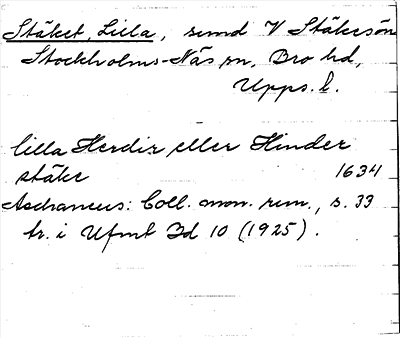 Stäket, Lilla, sund V Stäksön
Stockholms-Näs sn, Bro hd,
Upps. l.
lilla Herdis eller Hinder
stäke 1634
Aschaneus: Coll. mon. run., s. 33
tr. i Ufmt Bd 10 (1925).